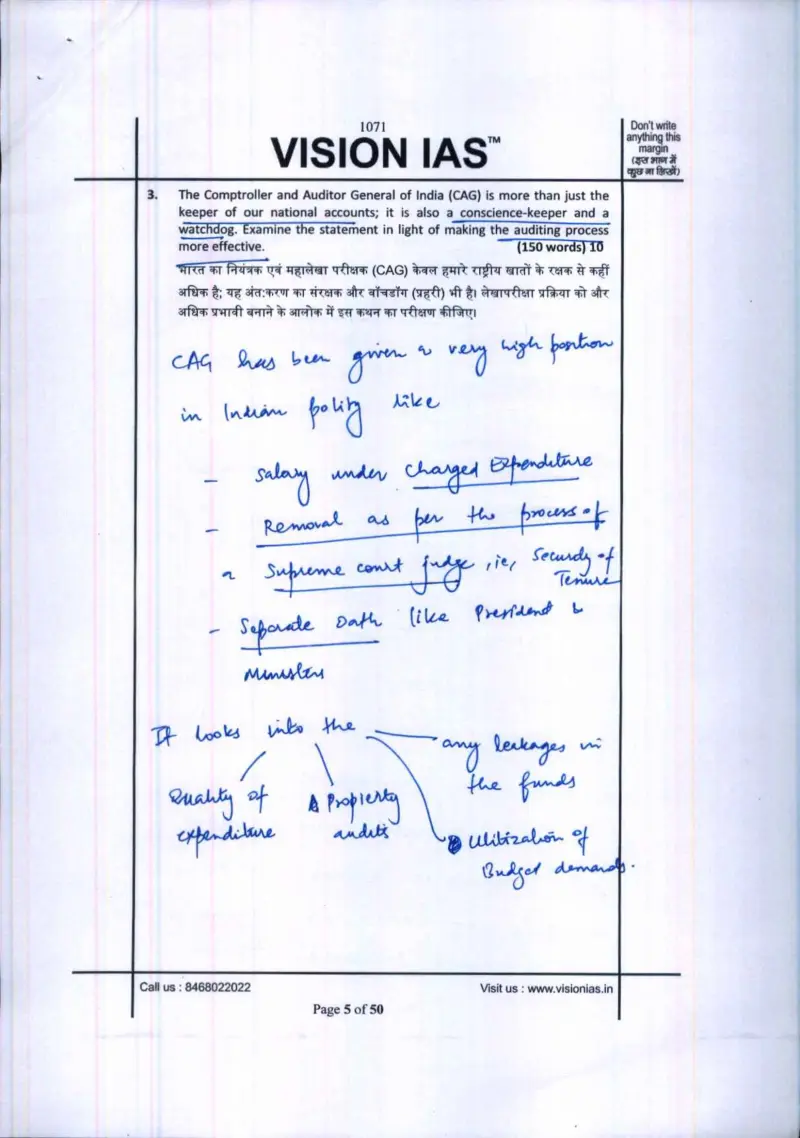 1071
VISION IAS™
Don't write
anything this
margin
(इस भाग में
कुछ ना लिखें)
3. The Comptroller and Auditor General of India (CAG) is more than just the
keeper of our national accounts; it is also a conscience-keeper and a
watchdog. Examine the statement in light of making the auditing process
more effective. (150 words) 10
भारत का नियंत्रक एवं महालेखा परीक्षक (CAG) केवल हमारे राष्ट्रीय खातों के रक्षक से कहीं
अधिक है; यह अंत:करण का संरक्षक और वॉचडॉग (प्रहरी) भी है। लेखापरीक्षा प्रक्रिया को और
अधिक प्रभावी बनाने के आलोक में इस कथन का परीक्षण कीजिए।
CAG has been given a very high position
in Indian polity like
- Salary under Charged Expenditure
- Removal as per the process of
a Supreme court judge, ie, Security of
Tenure
- Separate Oath like President &
Ministers
It looks into the
any leakages in
the funds
Quality of
expenditure
Propierty
audits
Utilization of
Budget demands.
Call us : 8468022022
Visit us : www.visionias.in
Page 5 of 50